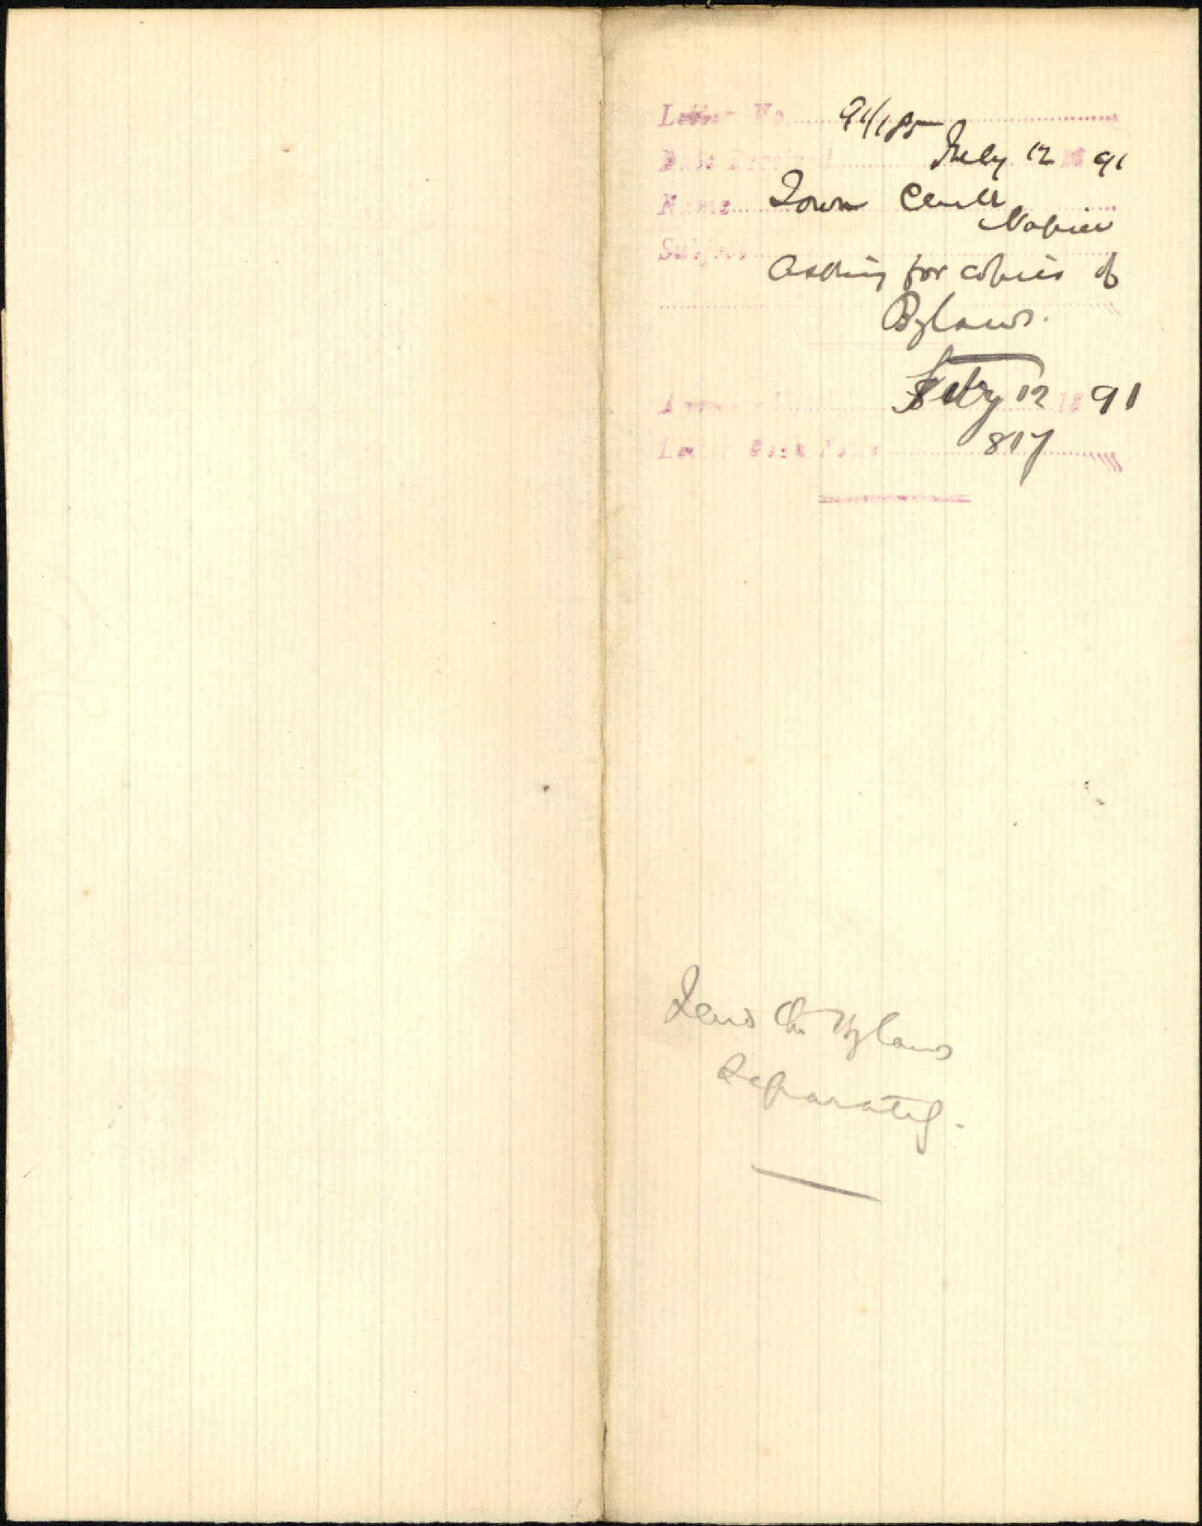 Letter No. 91/185
Date Received Feby 12 18 91
Name Town Clerk
Napier
Subject Asking for copies of
Bylaws.
Feby 12 18 91
Letter Book Folio 817
Send the Bylaws
separately.